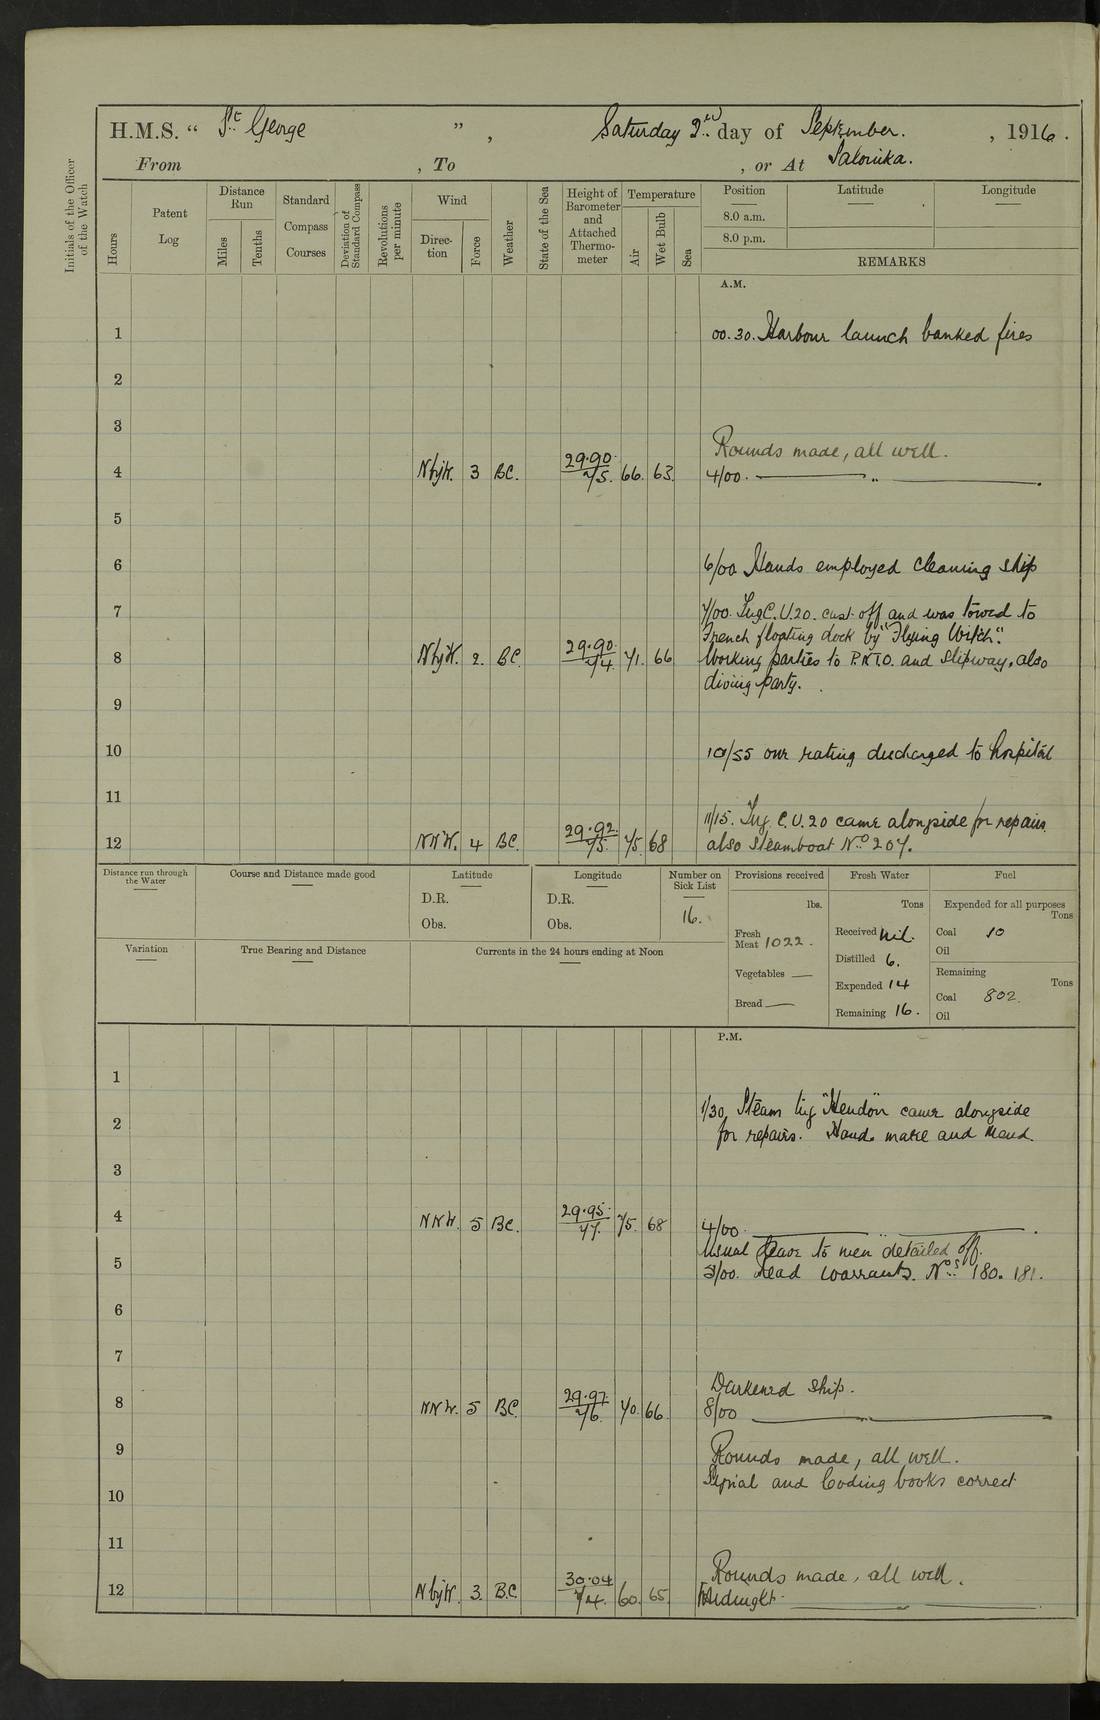 H.M.S. “ St George ” , Saturday 2nd day of September. , 1916.
From , To , or At Salonika.
Initials of the Officer of the Watch
Hours
Patent Log
Distance Run
Miles
Tenths
Standard Compass Courses
Deviation of Standard Compass
Revolutions per minute
Wind
Direction
Force
Weather
State of the Sea
Height of Barometer and Attached Thermometer
Temperature
Air
Wet Bulb
Sea
Position Latitude Longitude
8.0 a.m.
8.0 p.m.
REMARKS
A.M.
1 00.30. Harbour launch banked fires
2
3
Rounds made, all well.
4 NbyW. 3 BC. 29.90 75. 66. 63. 4/00. — „ —
5
6 6/00 Hands employed cleaning ship
7 7/00. Tug C.U.20. cast off and was towed to
French floating dock by "Flying Witch".
8 NbyW. 2. BC. 29.90 74. 71. 66 Working parties to P.N.T.O. and Slipway, also
diving party.
9
10 10/55 one rating discharged to hospital
11
11/15. Tug C.U.20 came alongside for repairs
12 NNW. 4 BC. 29.92 75. 75. 68 also steamboat No 207.
Distance run through the Water
Course and Distance made good
Latitude
D.R.
Obs.
Longitude
D.R.
Obs.
Number on Sick List
16.
Provisions received
lbs.
Fresh Meat 1022.
Vegetables —
Bread —
Fresh Water
Tons
Received Nil.
Distilled 6.
Expended 14
Remaining 16.
Fuel
Expended for all purposes
Tons
Coal 10
Oil
Remaining
Tons
Coal 802.
Oil
Variation
True Bearing and Distance
Currents in the 24 hours ending at Noon
P.M.
1
1/30, Steam tug "Hendon" came alongside
2 for repairs. Hands make and Mend.
3
4 NNW. 5 BC. 29.95 77. 75. 68 4/00 — „ —
Usual leave to men detailed off.
5 5/00. Read warrants. Nos 180. 181.
6
7
Darkened ship.
8 NNW. 5 BC 29.97 76. 70. 66 8/00 — „ —
9 Rounds made, all well.
Signal and Coding books correct
10
11
Rounds made, all well.
12 NbyW. 3. B.C 30.04 74. 60. 65. Midnight —